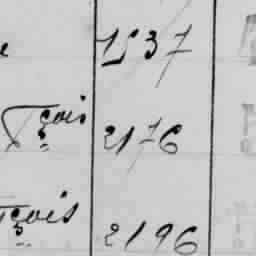 1537
Fçois 2176
Fçois 2196